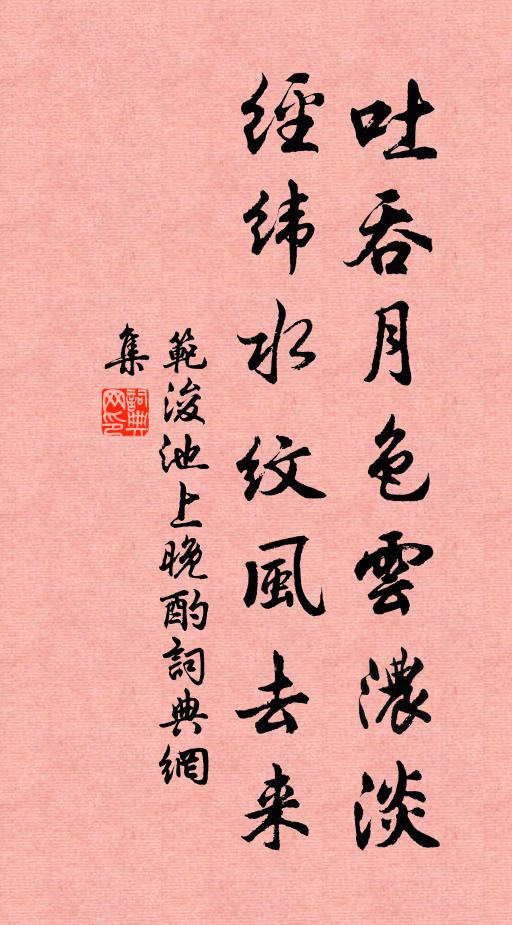 吐吞月色雲濃淡
經緯水紋風去来
範浚池上晚酌詞典網
集
詞典网印